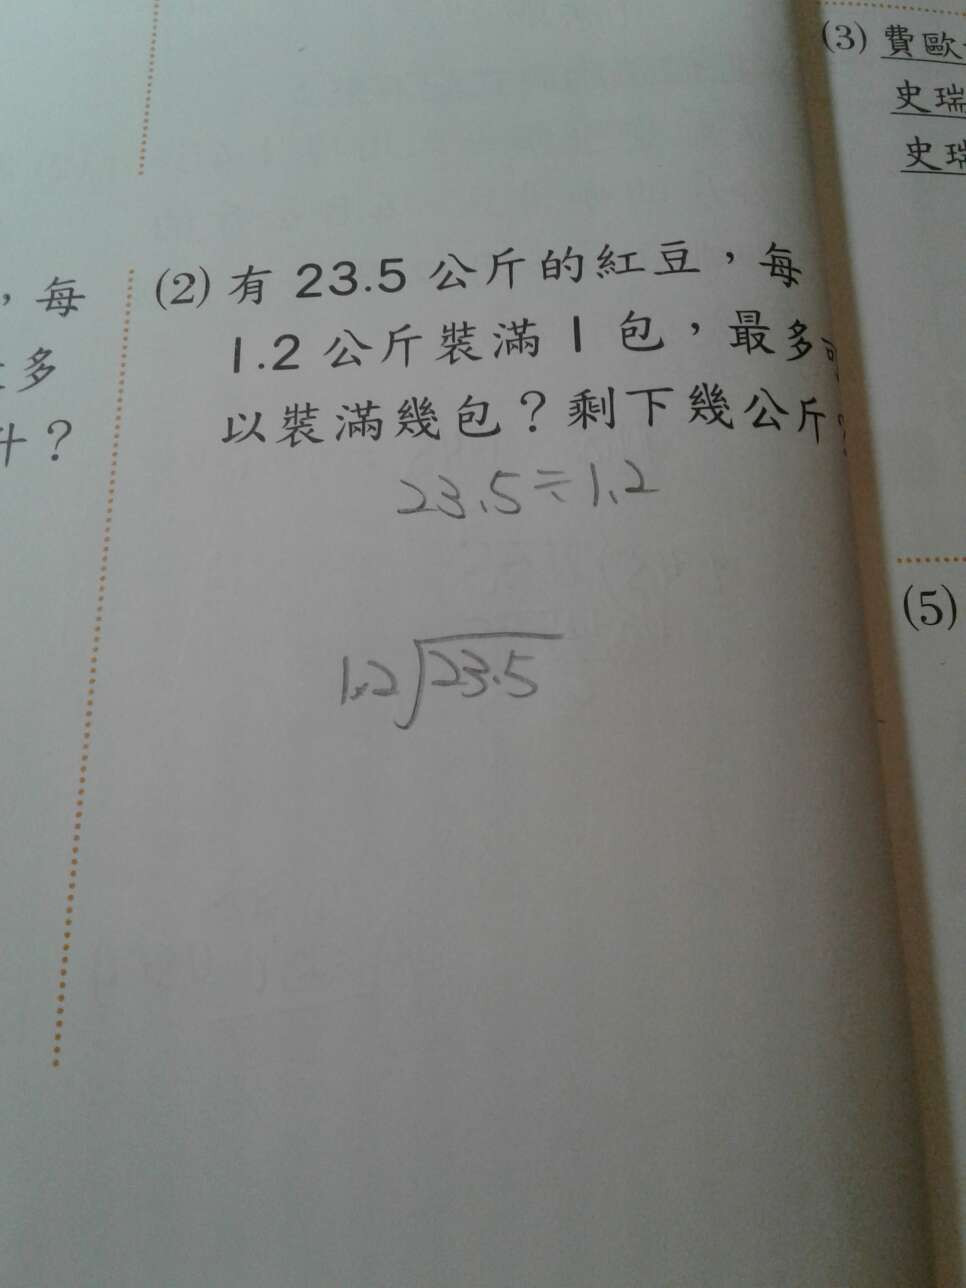 ，每
多
升？
(2) 有 23.5 公斤的紅豆，每
1.2 公斤裝滿 1 包，最多可
以裝滿幾包？剩下幾公斤？
23.5÷1.2
1.2 23.5
(3) 費歐
史瑞
史瑞
(5)